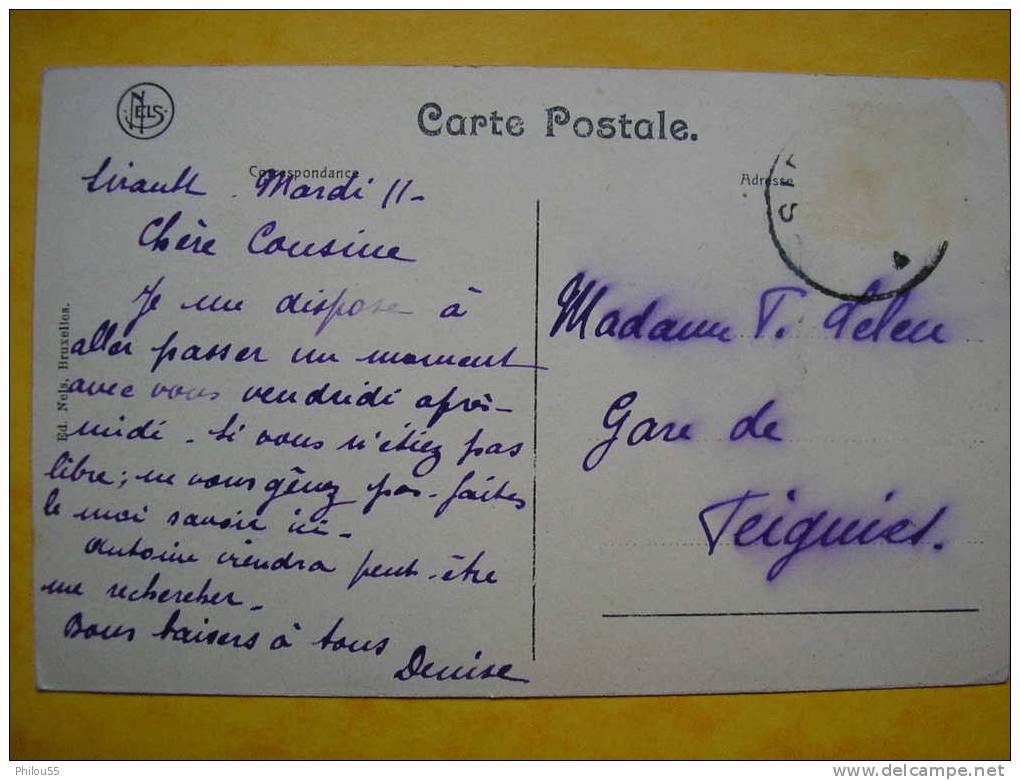 NELS
Carte Postale.
Correspondance
Adresse
Sirault. Mardi 11-
Chère Cousine
Je me dispose à
aller passer un moment
avec vous vendredi après-
midi. Si vous n'étiez pas
libre; ne vous gênez pas. faites
le moi savoir ici-
Antoine viendra peut-être
me rechercher-
Bons baisers à tous
Denise
Madame T.
Gare de
Teignies.
Ed. Nels, Bruxelles.
Philou55
www.delcampe.net